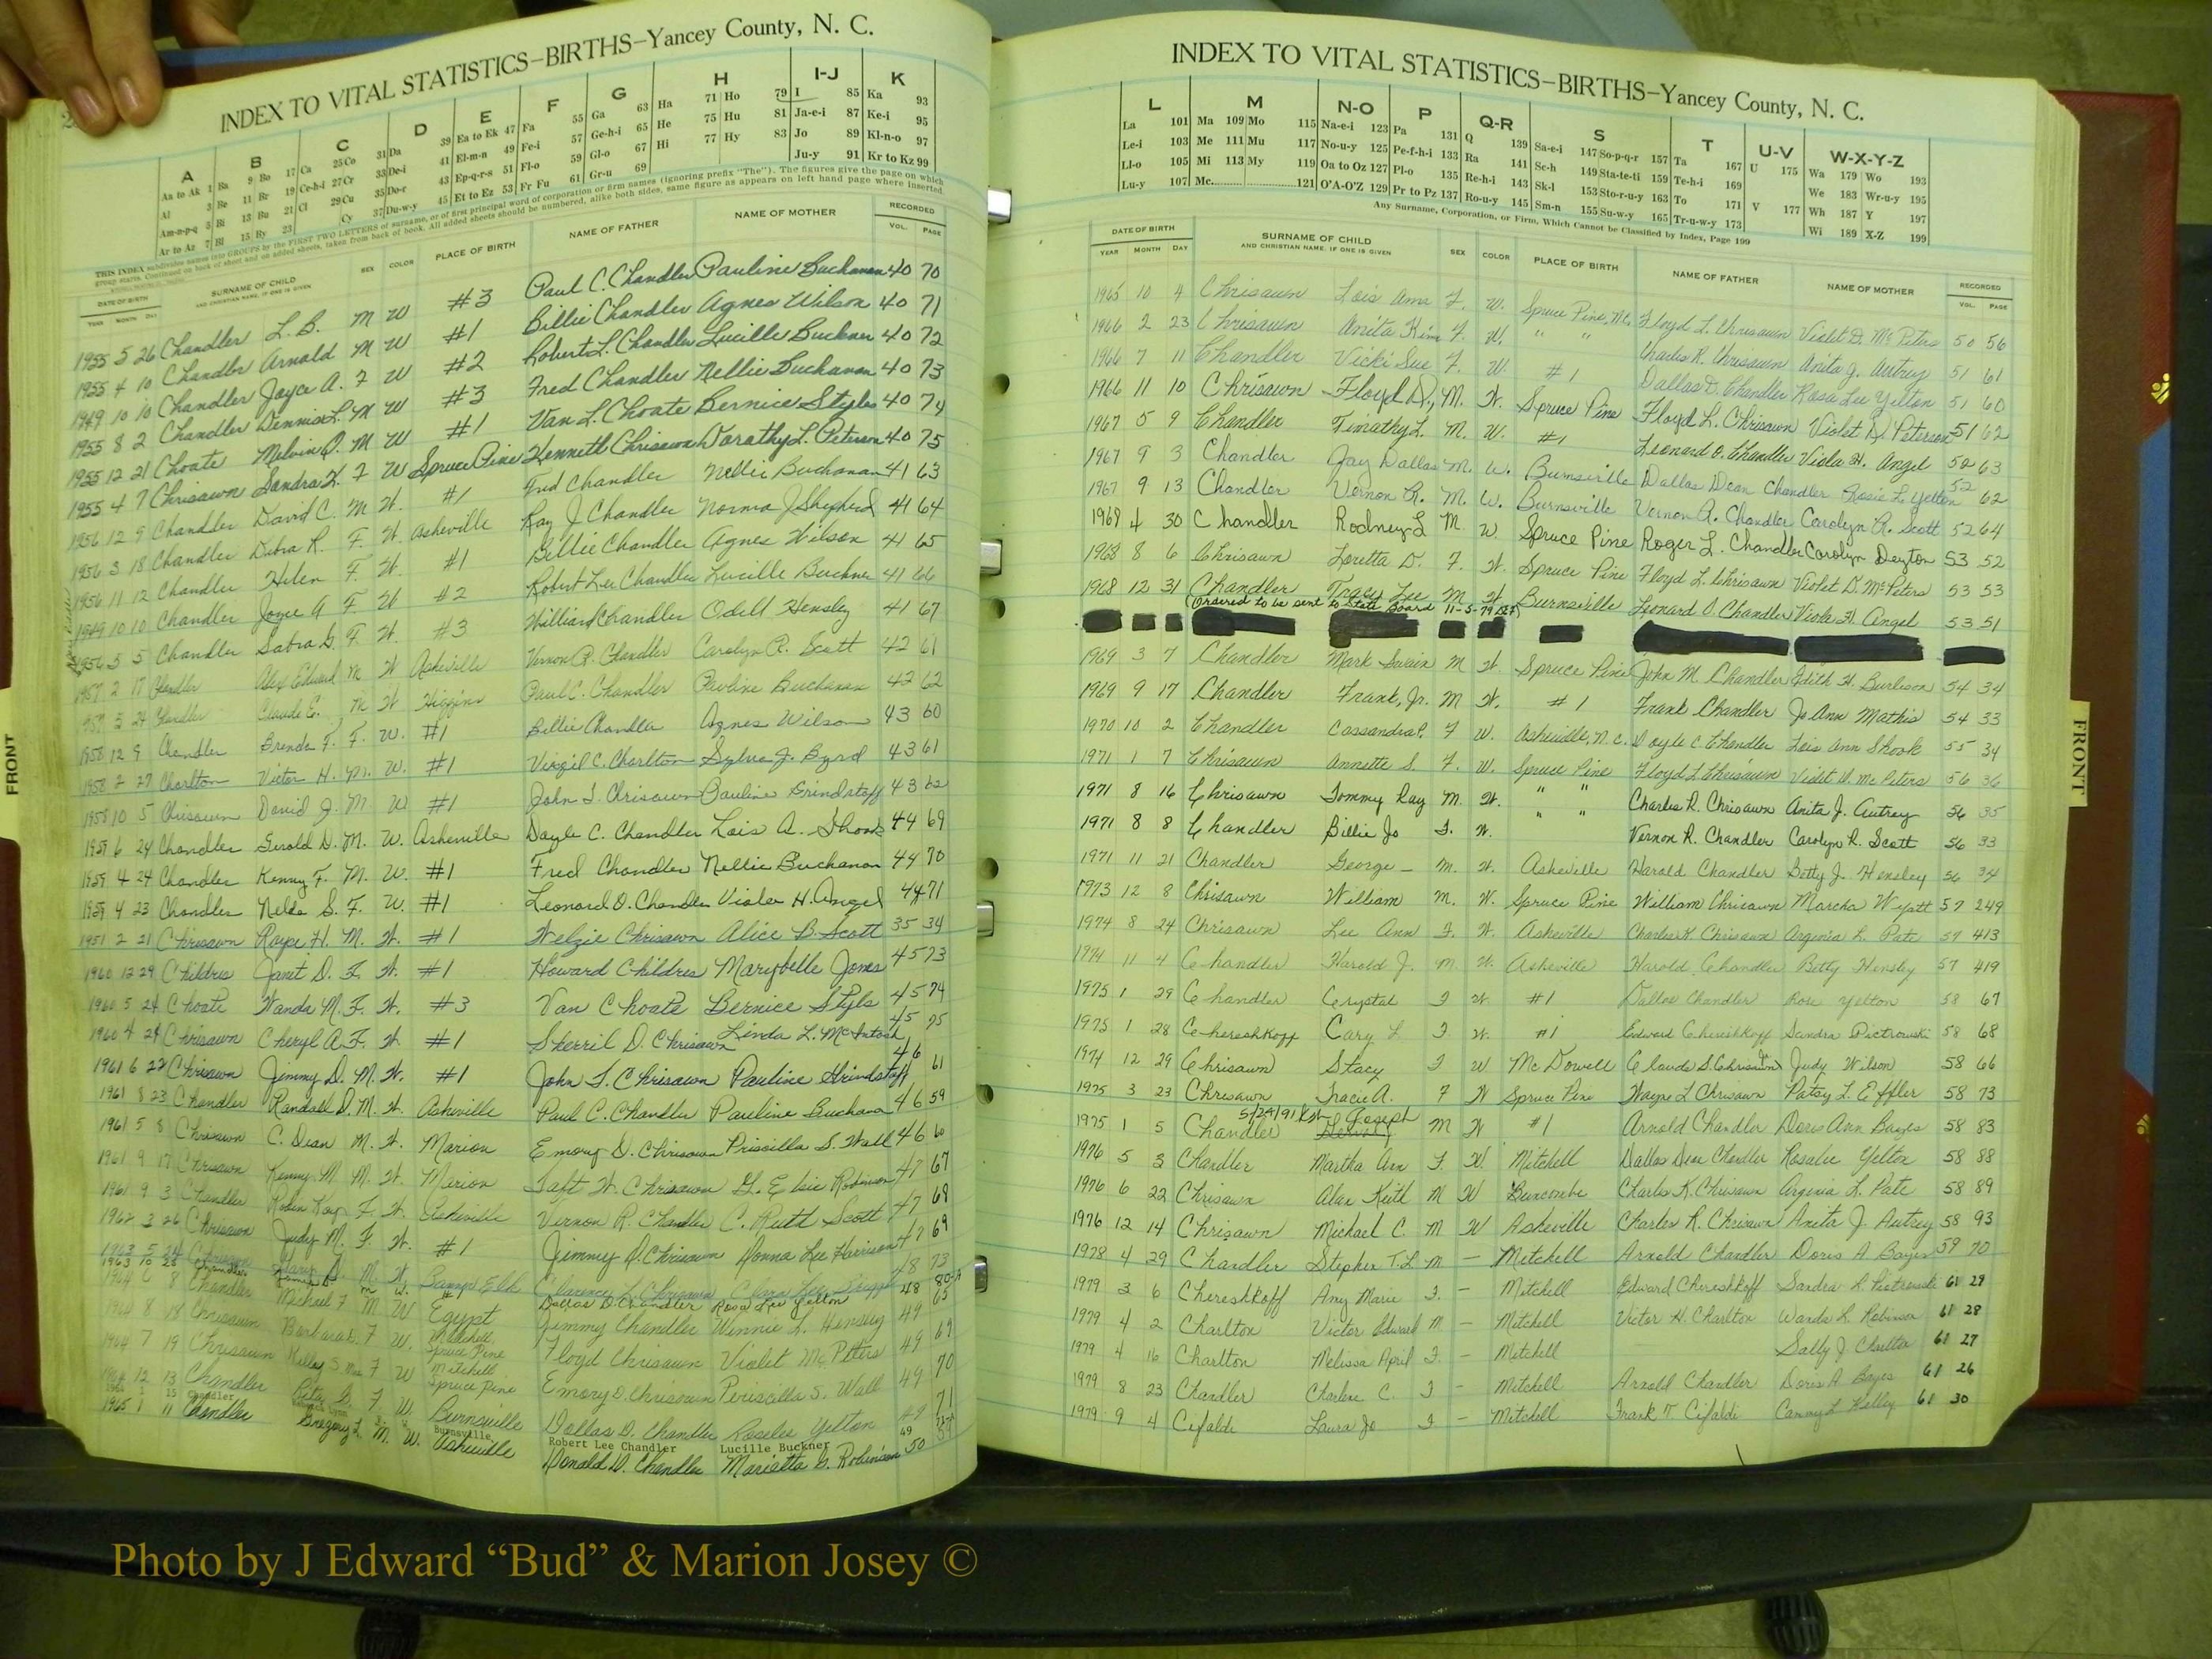 INDEX TO VITAL STATISTICS—BIRTHS—Yancey County, N. C.
A B C D E F G H I-J K
Aa to Ak 1 Ba 9 Bo 17 Ca 25 Co 31 Da 39 Ea to Ek 47 Fa 55 Ga 63 Ha 71 Ho 79 I 85 Ka 93
Al 3 Be 11 Br 19 Ce-h-i 27 Cr 33 De-i 41 El-m-n 49 Fe-i 57 Ge-h-i 65 He 75 Hu 81 Ja-e-i 87 Ke-i 95
Am-n-p-q 5 Bi 13 Bu 21 Cl 29 Cu 35 Do-r 43 Ep-q-r-s 51 Fl-o 59 Gl-o 67 Hi 77 Hy 83 Jo 89 Kl-n-o 97
Ar to Az 7 Bl 15 By 23 Cy 37 Du-w-y 45 Et to Ez 53 Fr Fu 61 Gr-u 69 Ju-y 91 Kr to Kz 99
DATE OF BIRTH SURNAME OF CHILD AND CHRISTIAN NAME, IF ONE IS GIVEN SEX COLOR PLACE OF BIRTH NAME OF FATHER NAME OF MOTHER RECORDED
YEAR MONTH DAY VOL. PAGE
1955 5 26 Chandler L.B. M W #3 Paul C. Chandler Pauline Buchanan 40 70
1955 4 10 Chandler Arnold M W #1 Billie Chandler Agnes Wilson 40 71
1949 10 10 Chandler Joyce A. F W #2 Robert L. Chandler Lucille Buckner 40 72
1955 8 2 Chandler Dennis L. M W #3 Fred Chandler Nellie Buchanan 40 73
1955 12 21 Choate Melvin D. M W #1 Van L. Choate Bernice Styles 40 74
1955 4 7 Chrisawn Sandra K. F W Spruce Pine Kenneth Chrisawn Dorathy L. Peterson 40 75
1956 12 9 Chandler David C. M W. #1 Fred Chandler Nellie Buchanan 41 63
1956 3 18 Chandler Debra R. F. W. Asheville Ray J Chandler Norma J Shepherd 41 64
1956 11 12 Chandler Helen F. W. #1 Billie Chandler Agnes Wilson 41 65
1949 10 10 Chandler Joyce A F. W #2 Robert Lee Chandler Lucille Buckner 41 66
1956 5 5 Chandler Sabra G. F W. #3 Williard Chandler Odell Hensley 41 67
1957 2 17 Chandler Alex Edward M W Asheville Vernon R. Chandler Carolyn R. Scott 42 61
1957 5 24 Chandler Claude E. M W Higgins Paul C. Chandler Pauline Buchanan 42 62
1958 12 9 Chandler Brenda F. F. W. #1 Billie Chandler Agnes Wilson 43 60
1958 2 27 Charlton Victor H. M. W. #1 Virgil C. Charlton Sylvia J. Byrd 43 61
1958 10 5 Chrisawn David J. M W #1 John T. Chrisawn Pauline Grindstaff 43 62
1959 6 24 Chandler Gerald D. M. W. Asheville Doyle C. Chandler Lois A. Shook 44 69
1959 4 24 Chandler Kenny F. M. W. #1 Fred Chandler Nellie Buchanan 44 70
1959 4 23 Chandler Nelda S. F. W. #1 Leonard O. Chandler Viola H. Angel 44 71
1951 2 21 Chrisawn Roype H. M. W. #1 Welzie Chrisawn Alice B. Scott 35 34
1960 12 29 Childres Janet D. F. W. #1 Howard Childres Marybelle Jones 45 73
1960 5 24 Choate Wanda M. F. W. #3 Van Choate Bernice Style 45 74
1960 4 24 Chrisawn Cheryl A. F. W. #1 Sherril D. Chrisawn Linda L. McIntosh 45 75
1961 6 22 Chrisawn Jimmy D. M. W. #1 John T. Chrisawn Pauline Grindstaff 46 61
1961 8 23 Chandler Randall D. M. W. Asheville Paul C. Chandler Pauline Buchana 46 59
1961 5 8 Chrisawn C. Dean M. W. Marion Emory D. Chrisawn Priscilla S. Wall 46 60
1961 9 17 Chrisawn Kenny M. M. W. Marion Taft W. Chrisawn G. Elsie Robinson 47 67
1961 9 3 Chandler Robin Kay F. W. Asheville Vernon R. Chandler C. Ruth Scott 47 68
1962 3 26 Chrisawn Judy M. F. W. #1 Jimmy D. Chrisawn Donna Lee Harrison 47 69
1964 6 8 Chandler Michael F M W Egypt Jimmy Chandler Winnie L. Hensley 49 65
1964 8 18 Chrisawn Barbara F W. Mitchell Spruce Pine Floyd Chrisawn Violet McPeters 49 69
1964 7 19 Chrisawn Kelly S F W Mitchell Spruce Pine Emory D. Chrisawn Periscilla S. Wall 49 70
1964 12 13 Chandler Rita G. F W. Burnsville Dallas D. Chandler Roselee Yelton 49 71
15 Chandler Burnsville Robert Lee Chandler Lucille Buckner 49
1965 1 11 Chandler Gregory L. M. W. Asheville Donald D. Chandler Marietta G. Robinson 50
FRONT
INDEX TO VITAL STATISTICS—BIRTHS—Yancey County, N. C.
L M N-O P Q-R S T U-V W-X-Y-Z
La 101 Ma 109 Mo 115 Na-e-i 123 Pa 131 Q 139 Sa-e-i 147 So-p-q-r 157 Ta 167 U 175 Wa 179 Wo 193
Le-i 103 Me 111 Mu 117 No-u-y 125 Pe-f-h-i 133 Ra 141 Sc-h 149 Sta-te-ti 159 Te-h-i 169 We 183 Wr-u-y 195
Ll-o 105 Mi 113 My 119 Oa to Oz 127 Pl-o 135 Re-h-i 143 Sk-l 153 Sto-r-u-y 163 To 171 V 177 Wh 187 Y 197
Lu-y 107 Mc 121 O'A-O'Z 129 Pr to Pz 137 Ro-u-y 145 Sm-n 155 Su-w-y 165 Tr-u-w-y 173 Wi 189 X-Z 199
Any Surname, Corporation, or Firm, Which Cannot be Classified by Index, Page 199
DATE OF BIRTH SURNAME OF CHILD AND CHRISTIAN NAME, IF ONE IS GIVEN SEX COLOR PLACE OF BIRTH NAME OF FATHER NAME OF MOTHER RECORDED
YEAR MONTH DAY VOL. PAGE
1965 10 4 Chrisawn Lois Ann F. W. Spruce Pine, N.C. Floyd L. Chrisawn Violet D. McPeters 50 56
1966 2 23 Chrisawn Anita Kim F. W. " " Charles R. Chrisawn Anita J. Autrey 51 61
1966 7 11 Chandler Vicki Sue F. W. #1 Dallas D. Chandler Rosa Lee Yelton 51 60
1966 11 10 Chrisawn Floyd D., M. W. Spruce Pine Floyd L. Chrisawn Violet D. Peterson 51 62
1967 5 9 Chandler Timathy L. M. W. #1 Leonard O. Chandler Viola H. Angel 52 63
1967 9 3 Chandler Jay Dallas M. W. Burnsville Dallas Dean Chandler Rosie L. Yelton 52 62
1967 9 13 Chandler Vernon R. M. W. Burnsville Vernon R. Chandler Carolyn R. Scott 52 64
1968 4 30 Chandler Rodney L M. W. Spruce Pine Roger L. Chandler Carolyn Deyton 53 52
1968 8 6 Chrisawn Loretta D. F. W. Spruce Pine Floyd L. Chrisawn Violet D. McPeters 53 53
1968 12 31 Chandler Tracy Lee M W. Burnsville Leonard O. Chandler Viola H. Angel 53 51
(Ordered to be sent to State Board 11-5-79
1969 3 7 Chandler Mark Swain M W. Spruce Pine John M. Chandler Edith H. Burleson 54 34
1969 9 17 Chandler Frank, Jr. M W. #1 Frank Chandler Jo Ann Mathis 54 33
1970 10 2 Chandler Cassandra P. F W. Asheville, N.C. Doyle C. Chandler Lois Ann Shook 55 34
1971 1 7 Chrisawn Annette S. F. W. Spruce Pine Floyd L Chrisawn Violet D. McPeters 56 36
1971 8 16 Chrisawn Tommy Ray M. W. " " Charles R. Chrisawn Anita J. Autrey 56 35
1971 8 8 Chandler Billie Jo F. W. " " Vernon R. Chandler Carolyn R. Scott 56 33
1971 11 21 Chandler George — M. W. Asheville Harold Chandler Betty J. Hensley 56 34
1973 12 8 Chrisawn William M. W. Spruce Pine William Chrisawn Marcha Wyatt 57 249
1974 8 24 Chrisawn Lee Ann F. W. Asheville Charles K Chrisawn Argenia L. Pate 57 413
1974 11 4 Chandler Harold J. M. W. Asheville Harold Chandler Betty Hensley 57 419
1975 1 29 Chandler Crystal F W. #1 Dallas Chandler Rose Yelton 58 67
1975 1 28 Chereshkoff Cary L F W. #1 Edward Chereshkoff Sandra Piotrowski 58 68
1974 12 29 Chrisawn Stacy F W McDowell Claude S. Chrisawn Judy Wilson 58 66
1975 3 23 Chrisawn Tracie A. F W Spruce Pine Wayne L Chrisawn Patsy L. Effler 58 73
5/24/91 Joseph
1975 1 5 Chandler M W #1 Arnold Chandler Doris Ann Bayes 58 83
1976 5 3 Chandler Martha Ann F. W. Mitchell Dallas Dean Chandler Rosalee Yelton 58 88
1976 6 22 Chrisawn Alan Keith M W Buncombe Charles K. Chrisawn Argenia L. Pate 58 89
1976 12 14 Chrisawn Michael C. M W Asheville Charles R. Chrisawn Anita J. Autrey 58 93
1978 4 29 Chandler Stephen T.L M — Mitchell Arnold Chandler Doris A Bayes 59 70
1979 3 6 Chereshkoff Amy Marie F. — Mitchell Edward Chereshkoff Sandra A Piotrowski 61 29
1979 4 2 Charlton Victor Edward M — Mitchell Victor H. Charlton Wanda L. Robinson 61 28
1979 4 16 Charlton Melissa April F. — Mitchell Sally J Charlton 61 27
1979 8 23 Chandler Charlene C. F — Mitchell Arnold Chandler Doris A Bayes 61 26
1979 9 4 Cifaldi Laura Jo F — Mitchell Frank T. Cifaldi Canny L Kelley 61 30
FRONT
Photo by J Edward “Bud” & Marion Josey ©